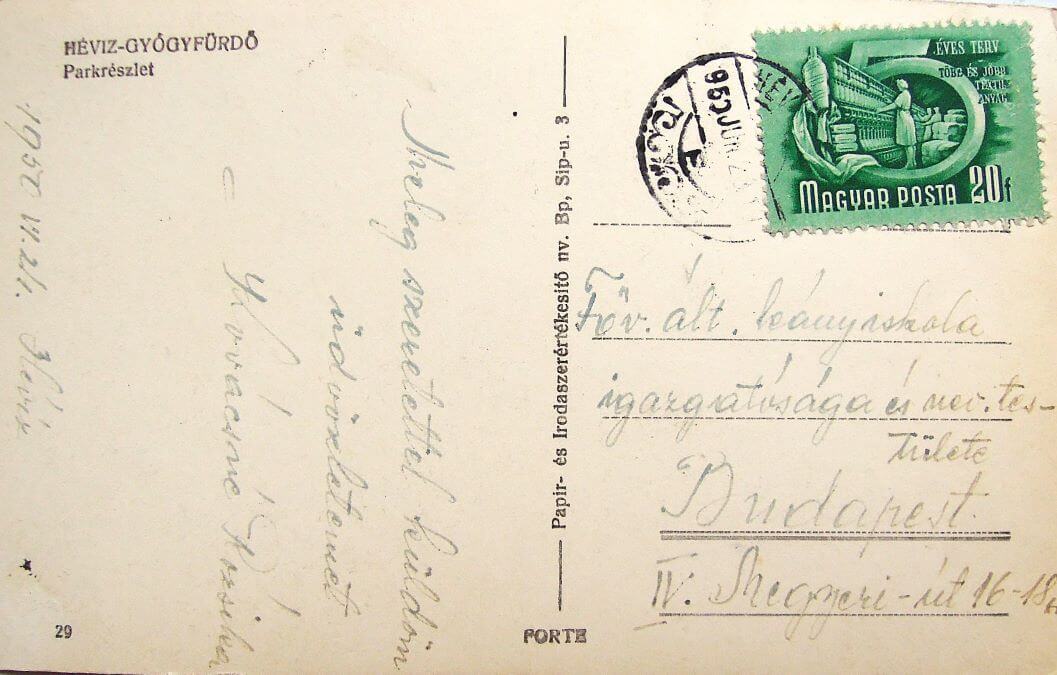 HÉVIZ-GYÓGYFÜRDŐ
Parkrészlet
1950 VI. 21. Hévíz
Meleg szeretettel küldön
üdvözletemet
Kovácsné Rózsika
29
Papir- és Irodaszerértékesitő nv. Bp, Sip-u. 3
PORTE
5 ÉVES TERV
TÖBB ÉS JOBB
TEXTIL
ANYAG
MAGYAR POSTA 20f
950 JUN. 2
HÉV
Főv. ált. leányiskola
igazgatósága és nev. tes-
tülete
Budapest.
IV. Megyeri-út 16-18